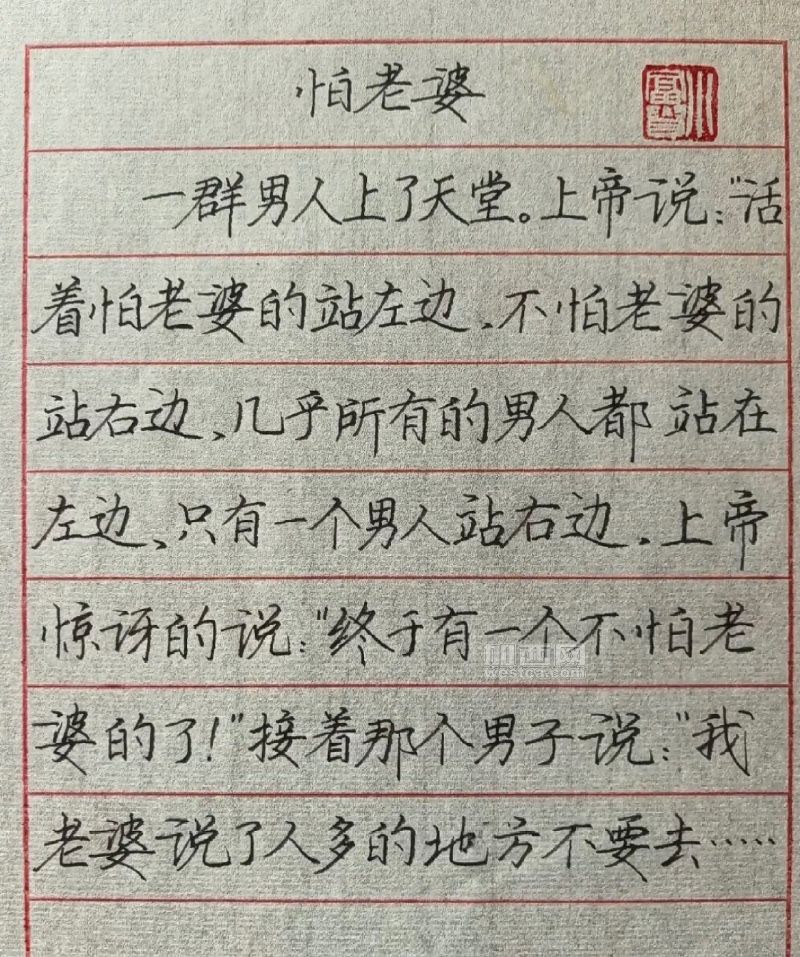 怕老婆
一群男人上了天堂。上帝说："活
着怕老婆的站左边、不怕老婆的
站右边、几乎所有的男人都站在
左边、只有一个男人站右边、上帝
惊讶的说："终于有一个不怕老
婆的了！"接着那个男子说："我
老婆说了人多的地方不要去……